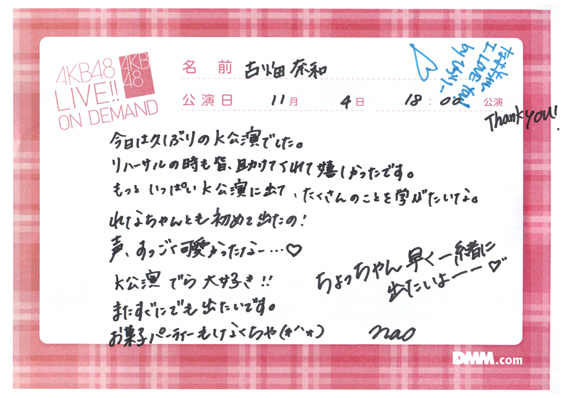 AKB48
LIVE!!
ON DEMAND
AKB
48
名前 古畑奈和
公演日 11月 4日 18:00 公演
I LOVE YOU!
Thank you!
今日は久しぶりのK公演でした。
リハーサルの時も皆、助けてくれて嬉しかったです。
もっといっぱいK公演に出て、たくさんのことを学びたいな。
れなちゃんとも初めて出たの!
声、すっごく可愛かったなー…♡
K公演 でら大好き!!
またすぐにでも出たいです。
お菓子パーティーもしなくちゃ(*^^*)
ちょっちゃん早く一緒に
出たいよーー♡
nao
DMM.com